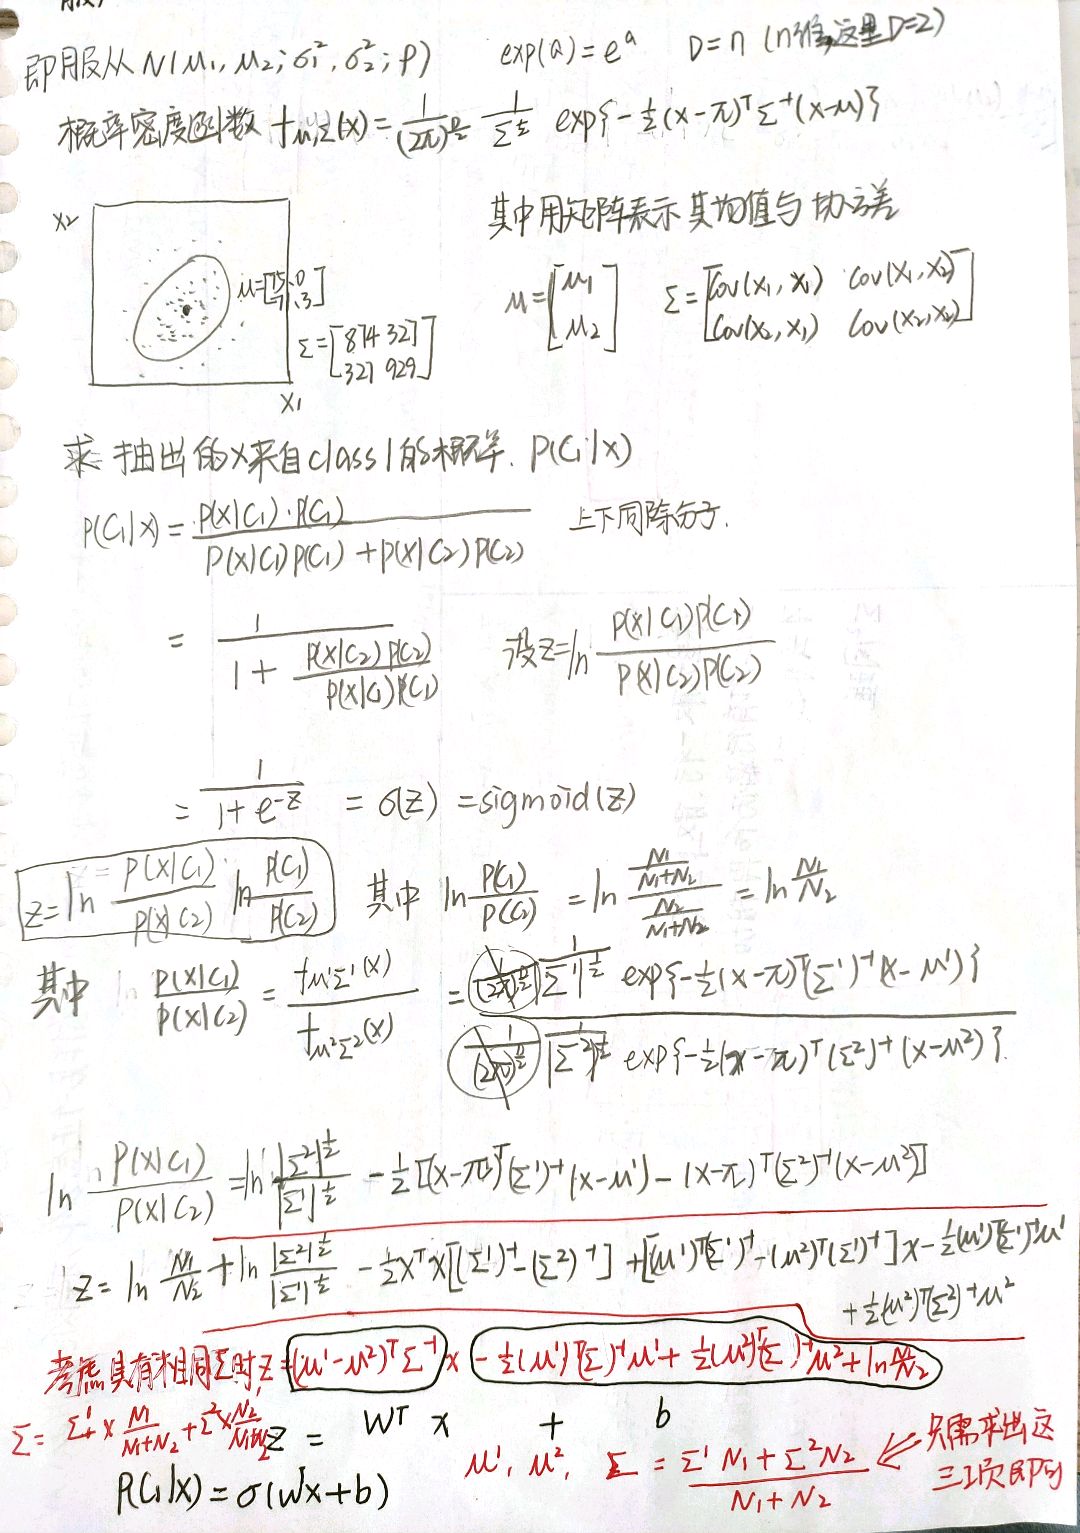 即服从 N(μ₁, μ₂; σ₁², σ₂²; ρ)   exp(a) = eᵃ   D = n (n维,这里D=2)
概率密度函数 f_{μ,Σ}(x) = 1/(2π)^{D/2} 1/Σ^{1/2} exp{-½(x-π)ᵀΣ⁻¹(x-μ)}
其中用矩阵表示其均值与协方差
x₂
μ = [75.0
71.3]
Σ = [874 327
327 929]
x₁
μ = [μ₁
μ₂]
Σ = [Cov(x₁, x₁) Cov(x₁, x₂)
Cov(x₂, x₁) Cov(x₂, x₂)]
求抽出的x来自class1的概率. P(C₁|x)
P(C₁|x) = P(x|C₁)·P(C₁) / P(x|C₁)P(C₁) + P(x|C₂)P(C₂)   上下同除分子.
= 1 / (1 + P(x|C₂)P(C₂) / P(x|C₁)P(C₁))   设z = ln P(x|C₁)P(C₁) / P(x|C₂)P(C₂)
= 1/(1+e^{-z}) = σ(z) = sigmoid(z)
z = ln P(x|C₁)/P(x|C₂) ln P(C₁)/P(C₂)   其中 ln P(C₁)/P(C₂) = ln (N₁/(N₁+N₂)) / (N₂/(N₁+N₂)) = ln N₁/N₂
其中 P(x|C₁)/P(x|C₂) = f_{μ¹Σ¹}(x) / f_{μ²Σ²}(x) = 1/(2π)^{D/2} 1/|Σ¹|^{1/2} exp{-½(x-π)ᵀ(Σ¹)⁻¹(x-μ¹)} / 1/(2π)^{D/2} 1/|Σ²|^{1/2} exp{-½(x-π)ᵀ(Σ²)⁻¹(x-μ²)}.
ln P(x|C₁)/P(x|C₂) = ln |Σ²|^{1/2}/|Σ¹|^{1/2} - ½[(x-π)ᵀ(Σ¹)⁻¹(x-μ¹) - (x-π)ᵀ(Σ²)⁻¹(x-μ²)]
z = ln N₁/N₂ + ln |Σ²|^{1/2}/|Σ¹|^{1/2} - ½xᵀx[(Σ¹)⁻¹-(Σ²)⁻¹] + [(μ¹)ᵀ(Σ¹)⁻¹-(μ²)ᵀ(Σ¹)⁻¹]x - ½(μ¹)ᵀ(Σ¹)⁻¹μ¹
+ ½(μ²)ᵀ(Σ²)⁻¹μ²
考虑具有相同Σ时, z = (μ¹-μ²)ᵀΣ⁻¹ x - ½(μ¹)ᵀ(Σ)⁻¹μ¹ + ½(μ²)ᵀ(Σ)⁻¹μ² + ln N₁/N₂
Σ = Σ¹ × N₁/(N₁+N₂) + Σ² × N₂/(N₁+N₂)   z = Wᵀ x + b
μ¹, μ², Σ = (Σ¹N₁ + Σ²N₂)/(N₁ + N₂)   只需求出这
三项即可
P(C₁|x) = σ(Wᵀx+b)